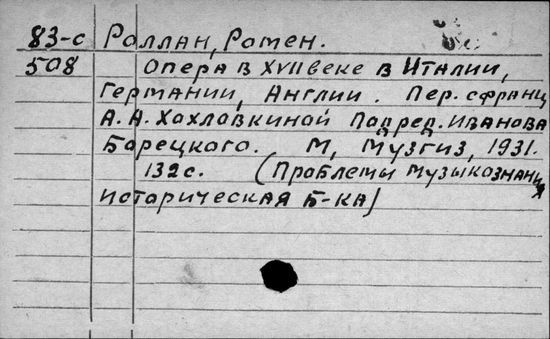 83-с Роллан, Ромен.
508 Опера в XVII веке в Италии,
Германии, Англии. Пер. сфранц
А. А. Хохловкиной Подред. Иванова
Борецкого. М, Музгиз, 1931.
132 с. (Проблемы музыкознания
историческая Б-ка)